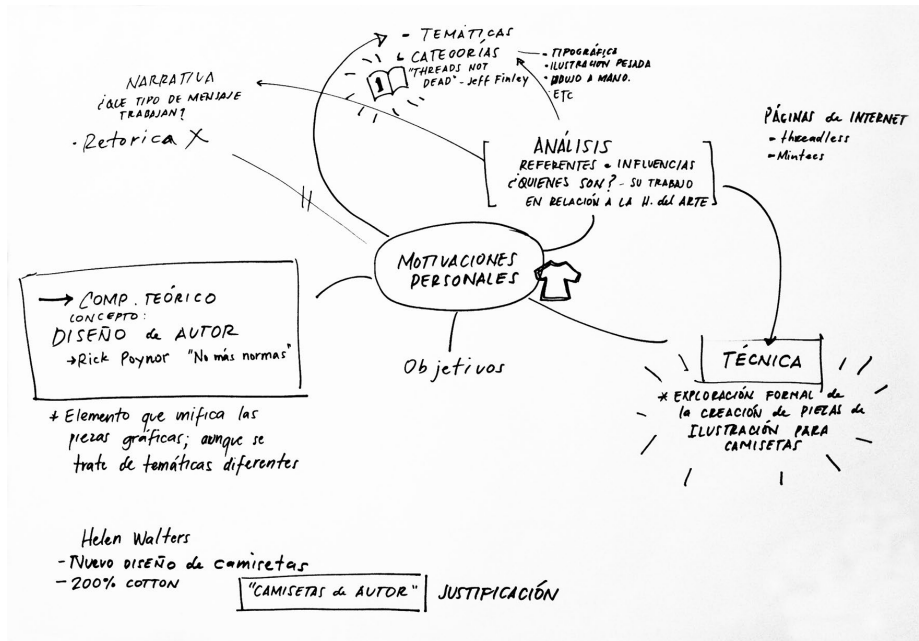 - TEMÁTICAS
CATEGORÍAS
"THREADS NOT
DEAD" - Jeff Finley
1
- TIPOGRÁFICA
- ILUSTRACIÓN PESADA
- DIBUJO A MANO.
- ETC
NARRATIVA
¿QUE TIPO DE MENSAJE
TRABAJAN?
- Retorica X
PÁGINAS de INTERNET
- threadless
- Mintees
ANÁLISIS
REFERENTES e INFLUENCIAS
¿QUIENES SON? - SU TRABAJO
EN RELACIÓN A LA H. del ARTE
MOTIVACIONES
PERSONALES
→ COMP. TEÓRICO
CONCEPTO:
DISEÑO de AUTOR
→ Rick Poynor "No más normas"
Objetivos
TÉCNICA
* EXPLORACIÓN FORMAL de
la CREACIÓN de PIEZAS de
ILUSTRACIÓN PARA
CAMISETAS
* Elemento que unifica las
piezas gráficas; aunque se
trate de temáticas diferentes
Helen Walters
- Nuevo DISEÑO de camisetas
- 200% COTTON
"CAMISETAS de AUTOR" JUSTIFICACIÓN